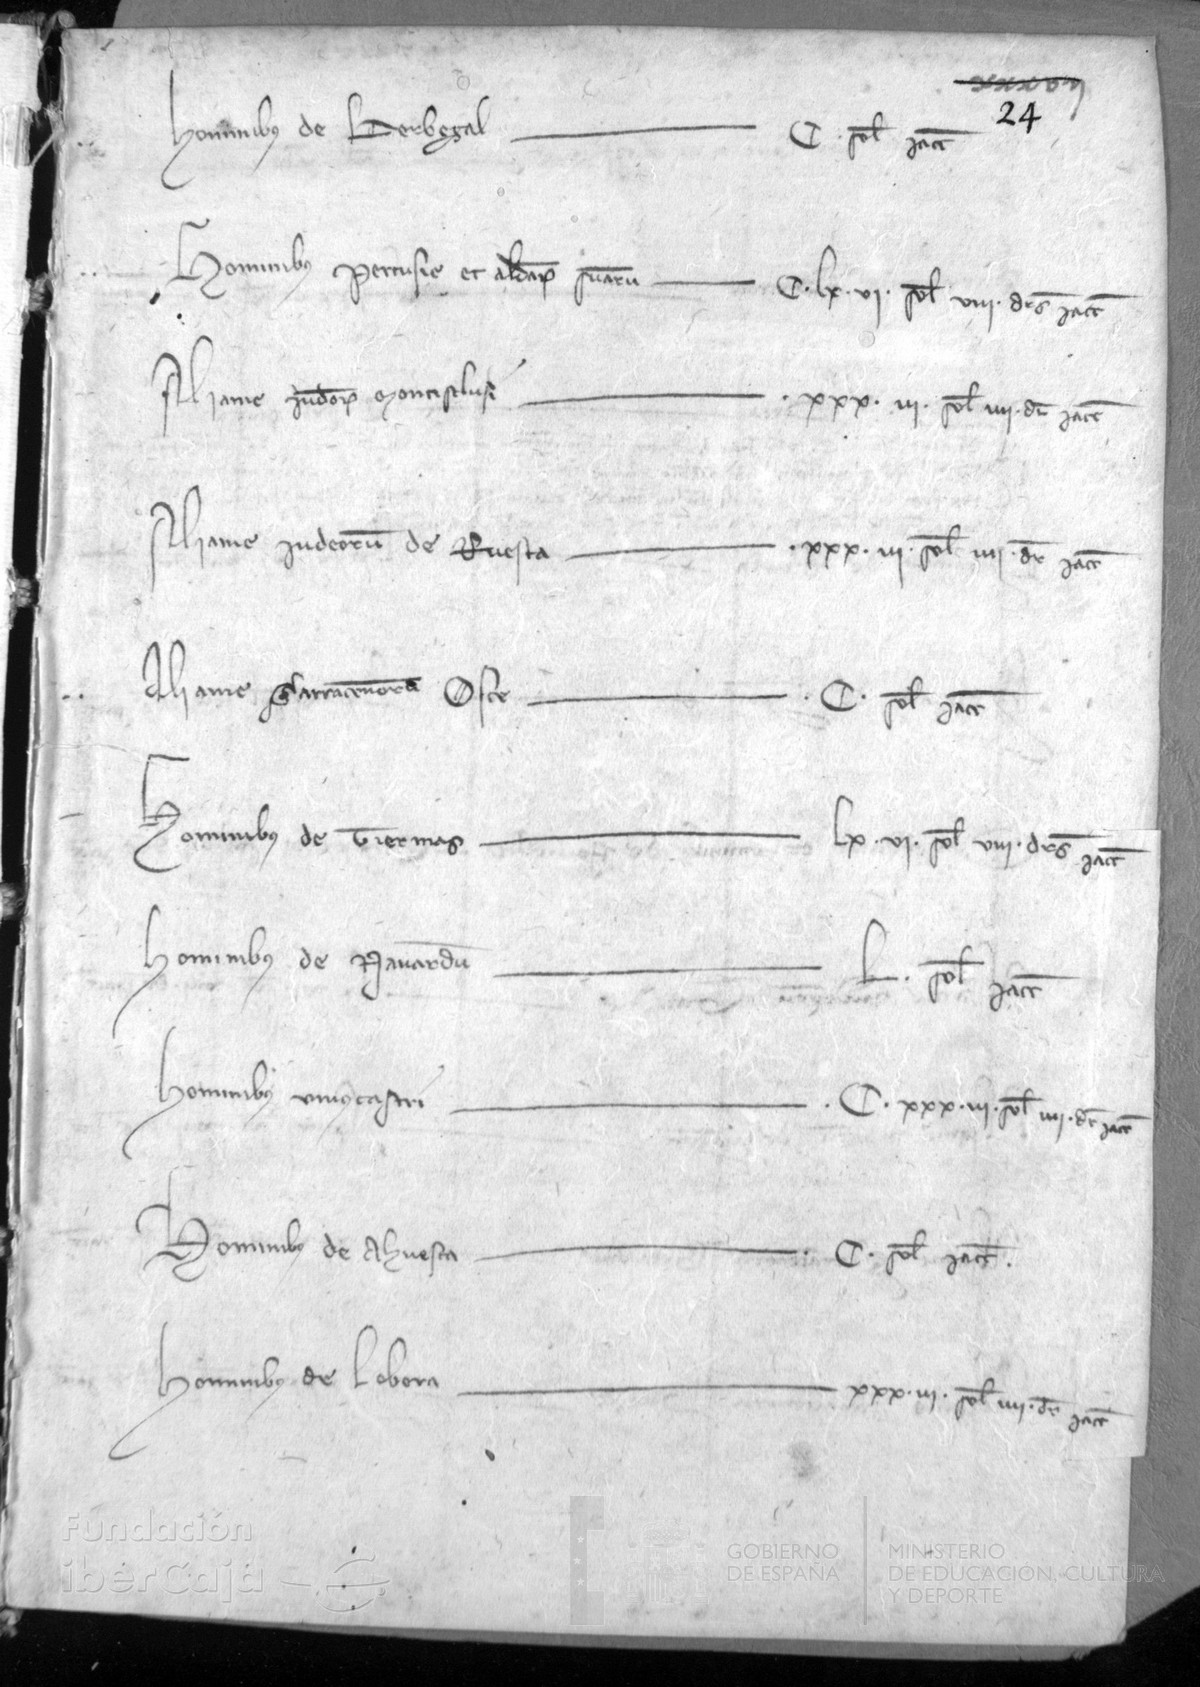 24
Hominibus de Berbegal C. sol jacc
Hominibus Pertusie et aldearum suarum C.lx.vi. sol viii. drs jacc
Aliame judeorum Montisclusi .xxx.iii. sol iiii. dr jacc
Aliame judeorum de Ruesta .xxx.iii. sol iiii. dr jacc
Aliame Sarracenorum Osce .C. sol jacc
Hominibus de Tiermas lx.vi. sol viii. drs jacc
Hominibus de L. sol jacc
Hominibus uniuscastri .C.xxx.iii. sol iiii. dr jacc
Hominibus de Ahuesta .C. sol jacc.
Hominibus de Lobera xxx.iii. sol iiii. dr jacc
Fundación
iberCaja
GOBIERNO
DE ESPAÑA
MINISTERIO
DE EDUCACIÓN, CULTURA
Y DEPORTE